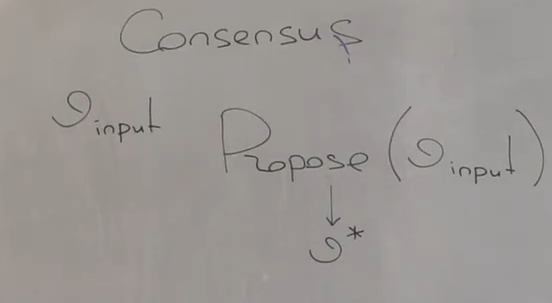 Consensus
v_input Propose (v_input)
↓
v*